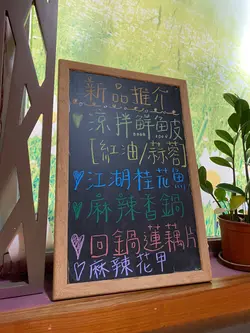 新品推介
涼拌鮮魚皮
[紅油/蒜蓉]
江湖桂花魚
麻辣香鍋
回鍋蓮藕片
麻辣花甲